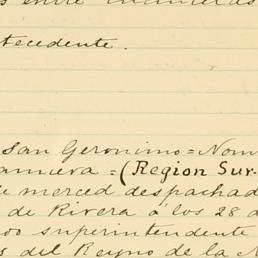 tecedente.
San Geronimo = Nom
= (Region Sur-
de merced despachad
de Rivera á los 28 d
superintendente
del Reyno de la